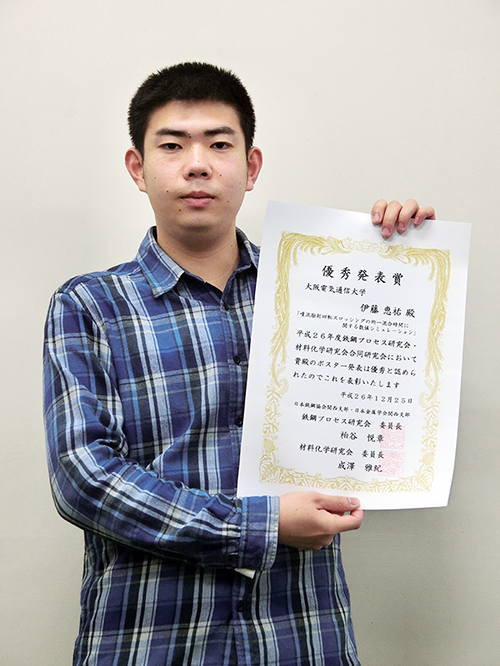 優秀発表賞
大阪電気通信大学
伊藤 恵祐 殿
「噴流励起回転スロッシングの均一混合時間に
関する数値シミュレーション」
平成26年度鉄鋼プロセス研究会・
材料化学研究会合同研究会において
貴殿のポスター発表は優秀と認めら
れたのでこれを表彰いたします
平成26年12月25日
日本鉄鋼協会関西支部・日本金属学会関西支部
鉄鋼プロセス研究会 委員長
柏谷 悦章
材料化学研究会 委員長
成澤 雅紀